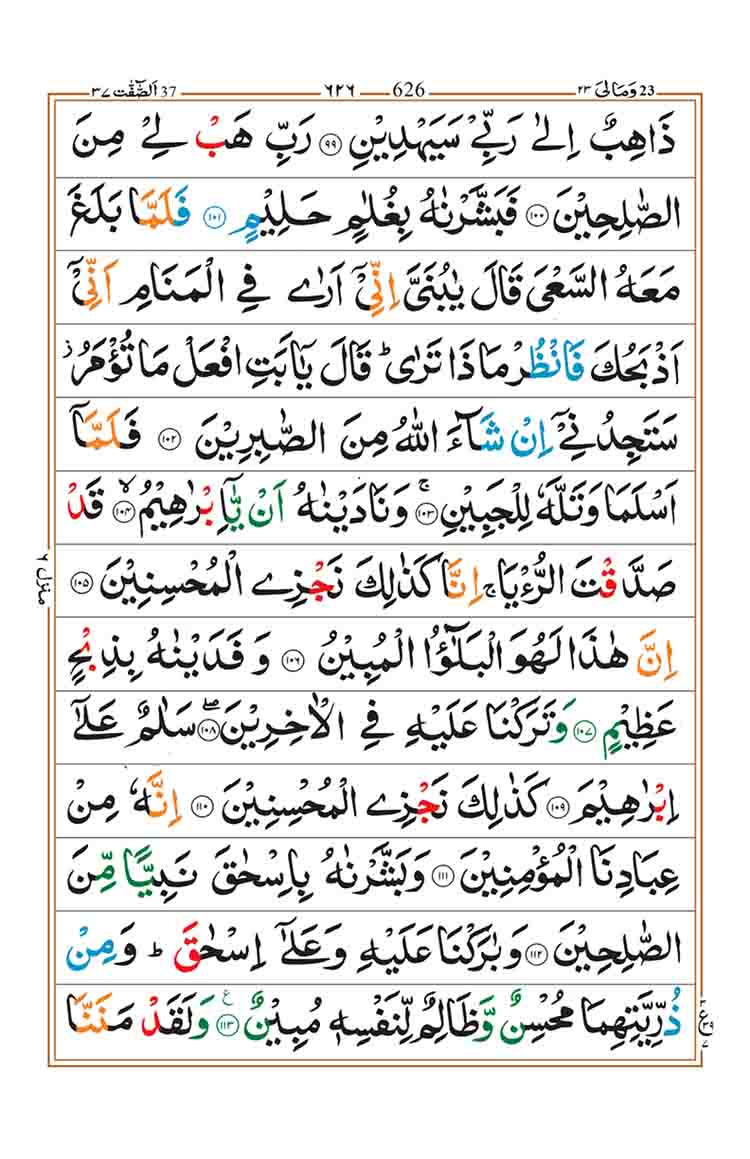 37 اَلصّٰٓفّٰت ٣٧ 626 ٦٢٦ 23 وَمَالِیَ ٢٣
ذَاهِبٌ اِلٰى رَبِّیْ سَيَهْدِيْنِ ﴿٩٩﴾ رَبِّ هَبْ لِیْ مِنَ
الصّٰلِحِيْنَ ﴿١٠٠﴾ فَبَشَّرْنٰهُ بِغُلٰمٍ حَلِيْمٍ ﴿١٠١﴾ فَلَمَّا بَلَغَ
مَعَهُ السَّعْیَ قَالَ يٰبُنَیَّ اِنِّیْۤ اَرٰى فِی الْمَنَامِ اَنِّیْۤ
اَذْبَحُكَ فَانْظُرْ مَاذَا تَرٰى ؕ قَالَ يٰۤاَبَتِ افْعَلْ مَا تُؤْمَرُ ؗ
سَتَجِدُنِیْۤ اِنْ شَآءَ اللّٰهُ مِنَ الصّٰبِرِيْنَ ﴿١٠٢﴾ فَلَمَّاۤ
اَسْلَمَا وَتَلَّهٗ لِلْجَبِيْنِ ۚ ﴿١٠٣﴾ وَنَادَيْنٰهُ اَنْ يّٰۤاِبْرٰهِيْمُ ۙ ﴿١٠٤﴾ قَدْ
صَدَّقْتَ الرُّءْيَا ۚ اِنَّا كَذٰلِكَ نَجْزِی الْمُحْسِنِيْنَ ﴿١٠٥﴾
اِنَّ هٰذَا لَهُوَ الْبَلٰٓؤُا الْمُبِيْنُ ﴿١٠٦﴾ وَفَدَيْنٰهُ بِذِبْحٍ
عَظِيْمٍ ﴿١٠٧﴾ وَتَرَكْنَا عَلَيْهِ فِی الْاٰخِرِيْنَ ۖ ﴿١٠٨﴾ سَلٰمٌ عَلٰۤى
اِبْرٰهِيْمَ ﴿١٠٩﴾ كَذٰلِكَ نَجْزِی الْمُحْسِنِيْنَ ﴿١١٠﴾ اِنَّهٗ مِنْ
عِبَادِنَا الْمُؤْمِنِيْنَ ﴿١١١﴾ وَبَشَّرْنٰهُ بِاِسْحٰقَ نَبِيًّا مِّنَ
الصّٰلِحِيْنَ ﴿١١٢﴾ وَبٰرَكْنَا عَلَيْهِ وَعَلٰۤى اِسْحٰقَ ؕ وَمِنْ
ذُرِّيَّتِهِمَا مُحْسِنٌ وَّظَالِمٌ لِّنَفْسِهٖ مُبِيْنٌ ۧ ﴿١١٣﴾ وَلَقَدْ مَنَنَّا
منزل ٦
ع